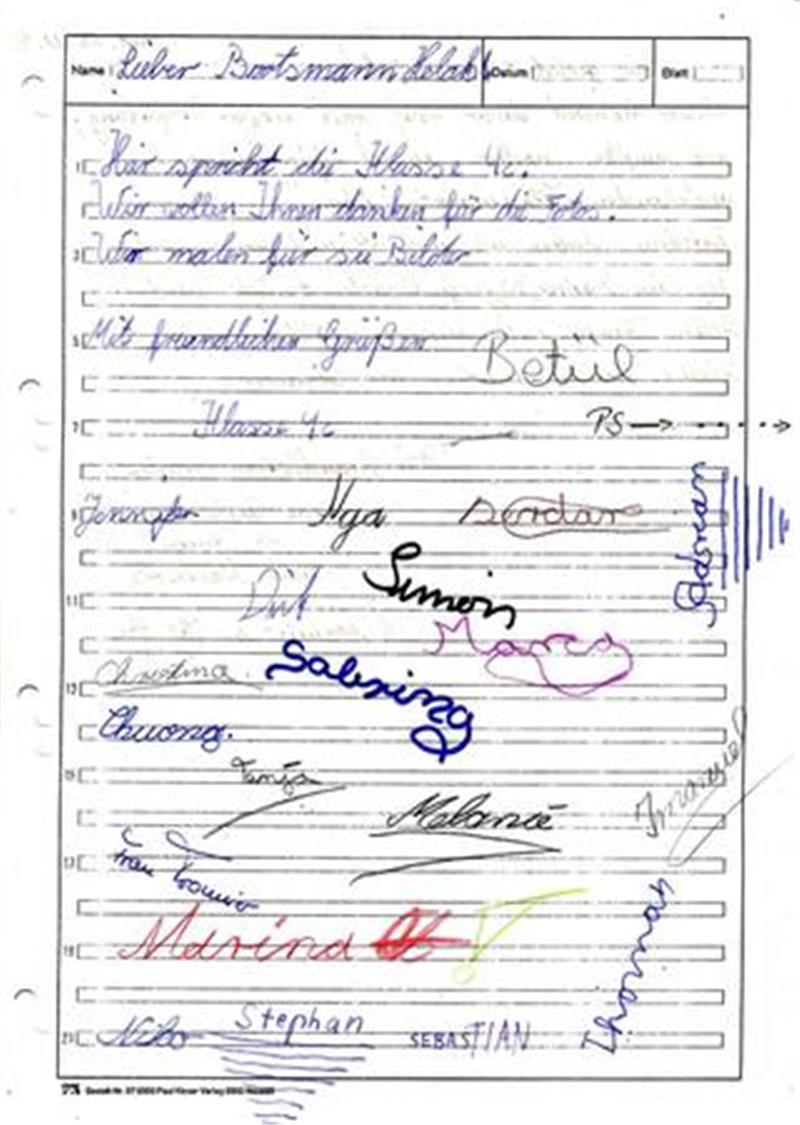 Name Lieber Bootsmann Datum Blatt
1 Hir spricht die Klasse 4c.
Wir wollen Ihnen danken für die Fotos.
3 Wir malen für sie Bilder
5 Mit freundlichen Grüßen Betül
7 Klasse 4c PS
9 Jennifer Nga Serdar Adorean
11 Simon
Marco
13 Christina Sabrina
Chuong.
15 Tanja
Melanie Imanuel
17 Frau
19 Marina Thomas
21 Niko Stephan SEBASTIAN